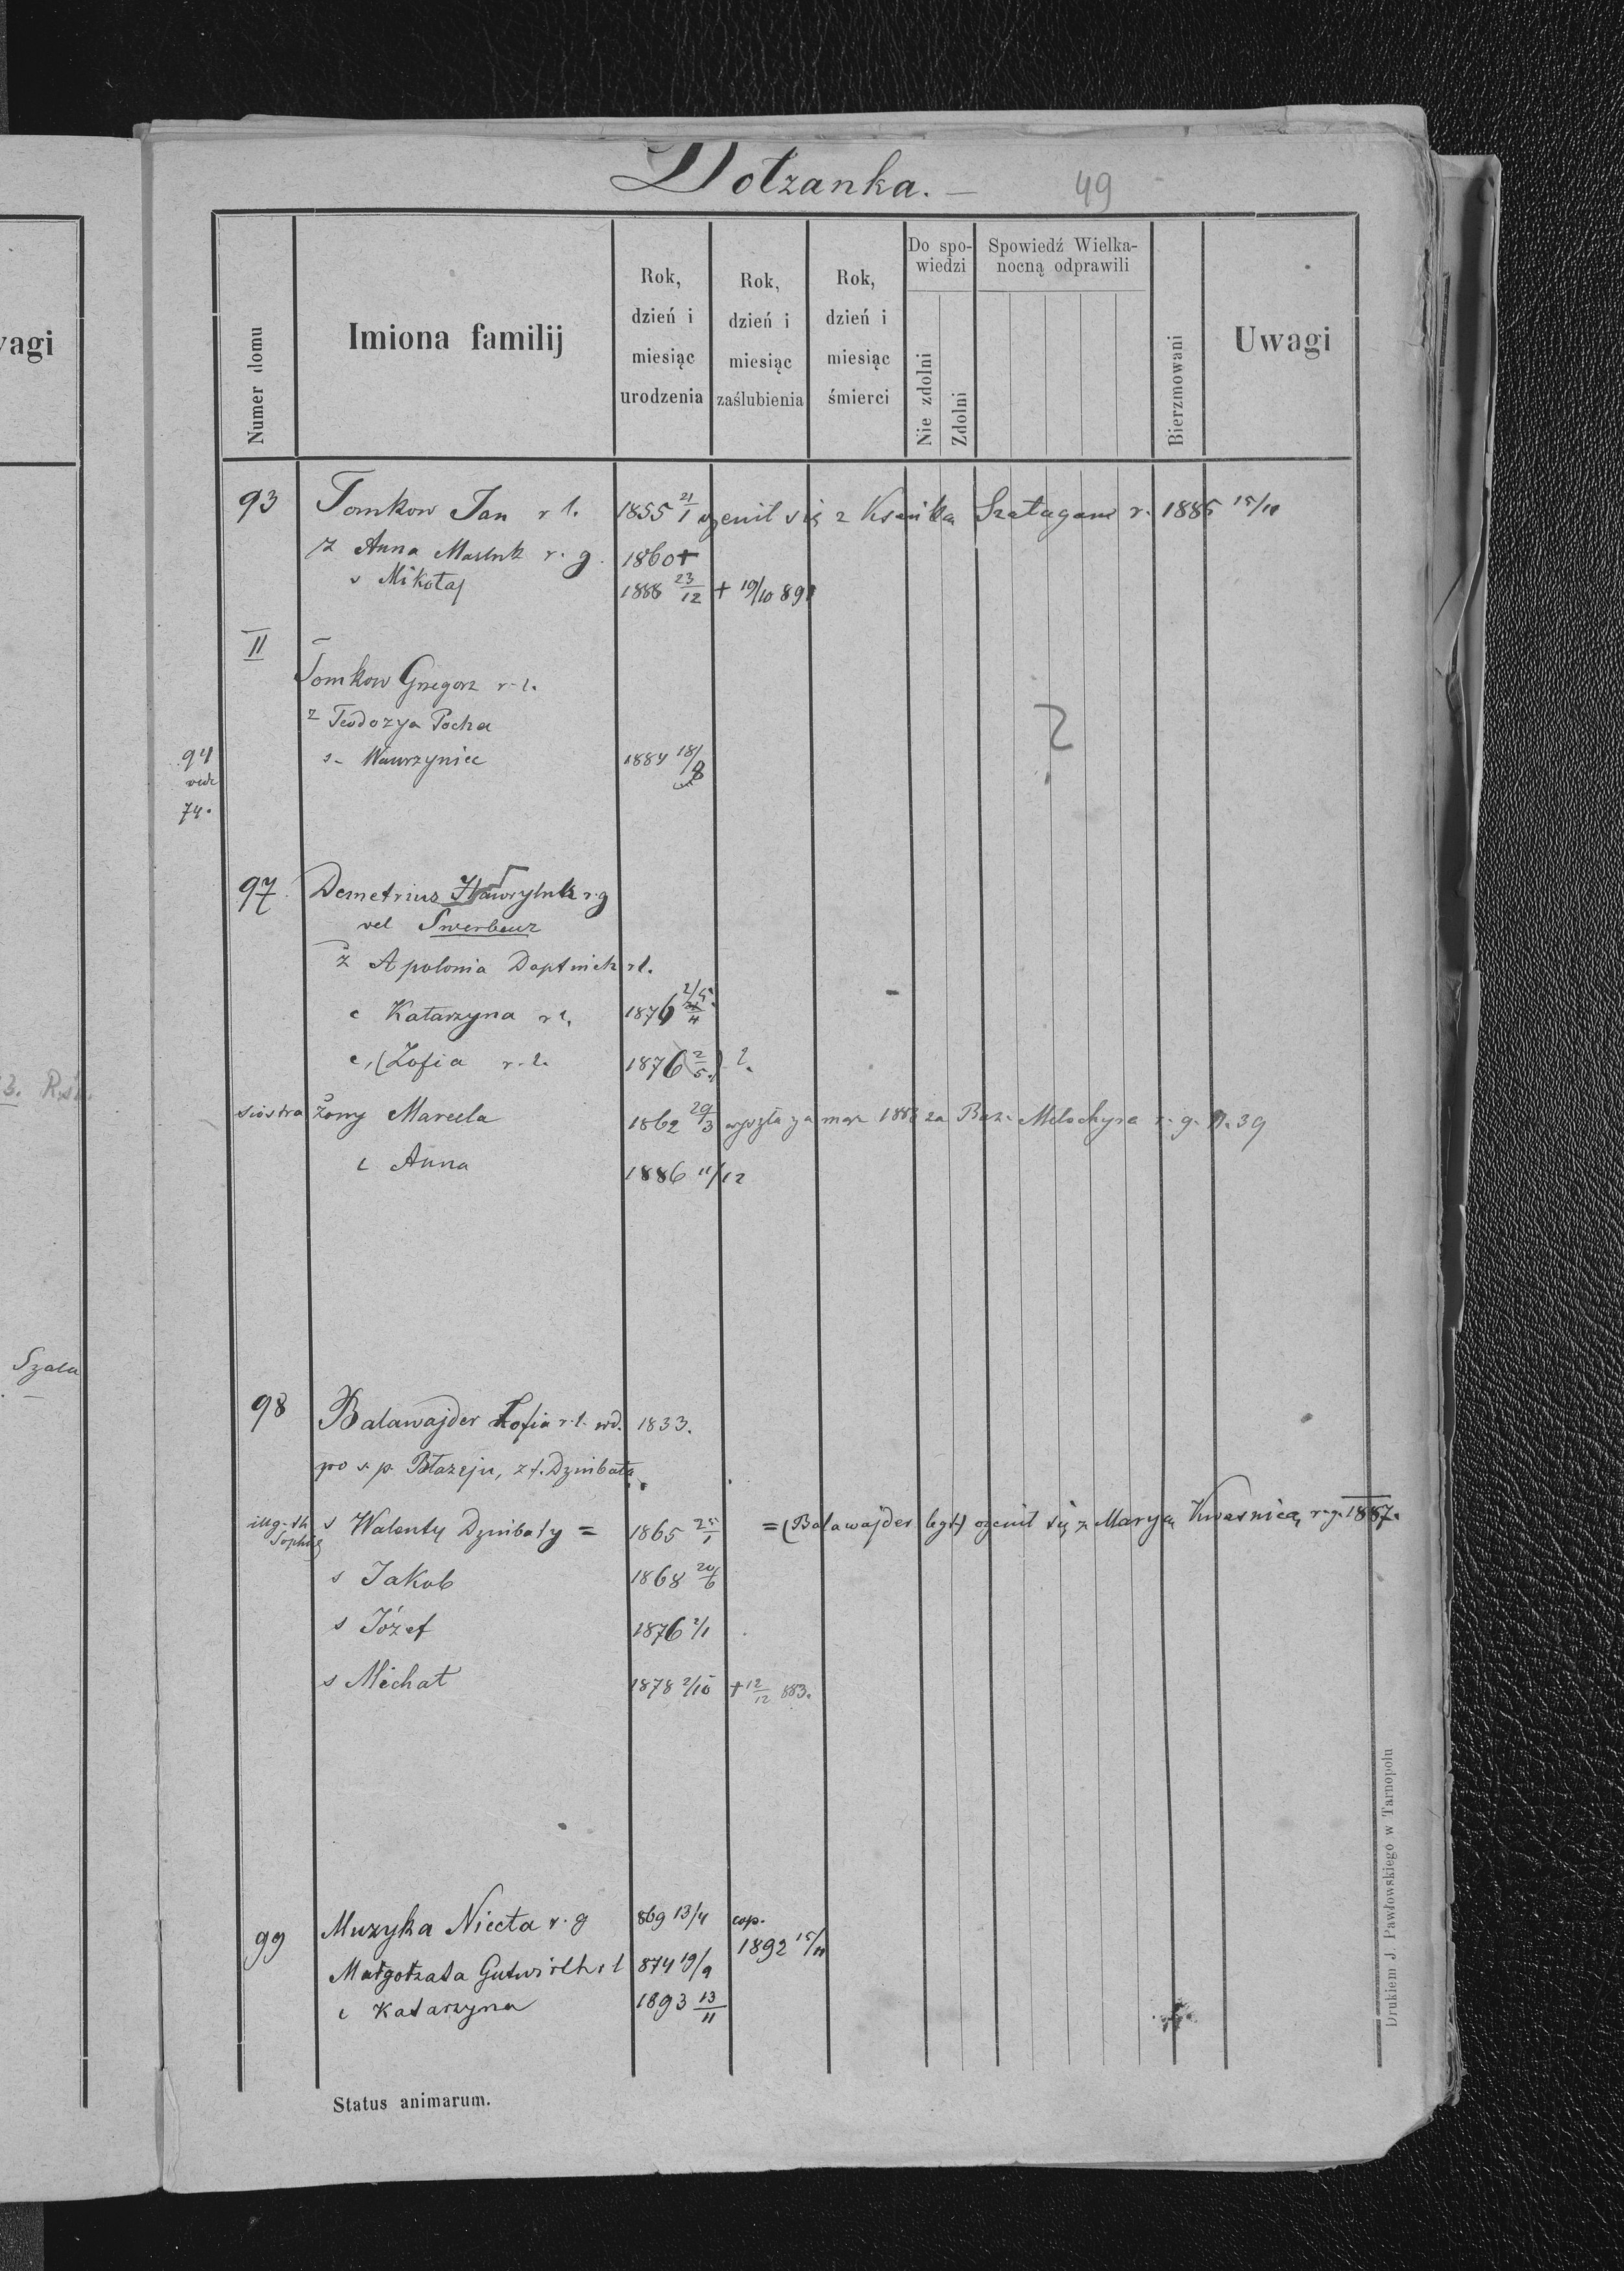 Dołzanka. — 49
vagi
Numer domu
Imiona familij
Rok, dzień i miesiąc urodzenia
Rok, dzień i miesiąc zaślubienia
Rok, dzień i miesiąc śmierci
Do spowiedzi
Nie zdolni
Zdolni
Spowiedź Wielkanocną odprawili
Bierzmowani
Uwagi
93 Tomkow Jan r l. 1855 21/1 ożenił się z Ksenka r. 1885 15/11
ż Anna r. g. 1860 +
s Mikołaj 1888 23/12 + 19/10 891
II
Tomkow Gregorz r. l.
ż Teodozya Pocha
s- Wawrzyniec 1884 18/8
94
vide
74.
?
97. Demetrius r. g
vel
ż Apolonia r l.
c Katarzyna r l. 1876
c, (Zofia r. l. 1876 2/5.) ?
siostra żony Marcela 1862 29/3 wyszła za mąż 1883 za Baz. r. g. N. 39
c Anna 1886 11/12
Szala
98 Balawajder Zofia r. l. wd. 1833.
po ś. p. Błazeju, z f. Dzinbała
illeg. th Sophią s Walenty Dzinbały = 1865 25/1 = (Balawajder legt) ożenił się z Maryą Kwasnicą r. g. 1887.
s Jakob 1868 20/6
s Józef 1876 2/1
s Michał 1878 2/10 + 12/12 883.
99 Muzyka Niceta r. g 869 13/4 cop.
1892 15/11
Małgorzata Gutwirth r l 874 19/9
c Katarzyna 1893 13/11
Status animarum.
Drukiem J. Pawłowskiego w Tarnopolu